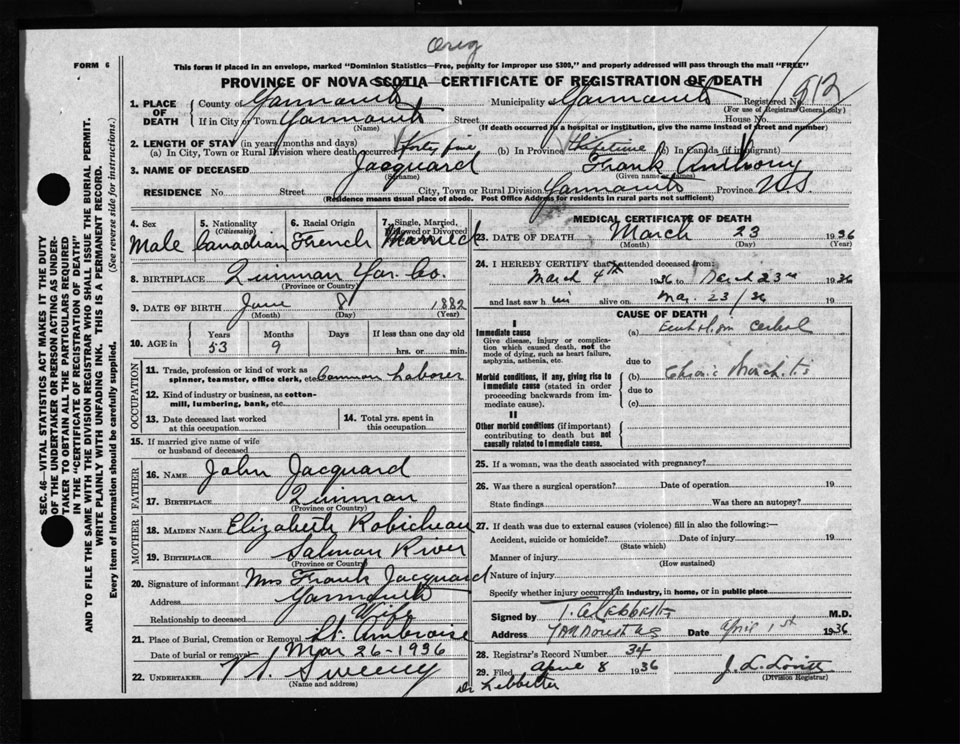 Orig
FORM 6
This form if placed in an envelope, marked "Dominion Statistics—Free, penalty for improper use $300," and properly addressed will pass through the mail "FREE"
PROVINCE OF NOVA SCOTIA—CERTIFICATE OF REGISTRATION OF DEATH
1. PLACE OF DEATH County of Yarmouth Municipality Yarmouth Registered No. 513
(For use of Registrar General only)
If in City or Town Yarmouth Street House No.
(Name) (If death occurred in a hospital or institution, give the name instead of street and number)
2. LENGTH OF STAY (in years, months and days)
(a) In City, Town or Rural Division where death occurred Forty five (b) In Province Lifetime (c) In Canada (if immigrant)
3. NAME OF DECEASED Jacquard Frank Anthony
(Surname) (Given name or names)
RESIDENCE No. Street City, Town or Rural Division Yarmouth Province N.S
(Residence means usual place of abode. Post Office Address for residents in rural parts not sufficient)
4. Sex 5. Nationality (Citizenship) 6. Racial Origin 7. Single, Married, Widowed or Divorced
Male Canadian French Married
8. BIRTHPLACE Quinan Yar. Co.
(Province or Country)
9. DATE OF BIRTH June 8 1882
(Month) (Day) (Year)
10. AGE in Years Months Days If less than one day old
53 9 hrs. or min.
OCCUPATION
11. Trade, profession or kind of work as spinner, teamster, office clerk, etc. Common Laborer
12. Kind of industry or business, as cotton-mill, lumbering, bank, etc.
13. Date deceased last worked at this occupation
14. Total yrs. spent in this occupation
15. If married give name of wife or husband of deceased
FATHER
16. NAME John Jacquard
17. BIRTHPLACE Quinan
(Province or Country)
MOTHER
18. MAIDEN NAME Elizabeth Robicheau
19. BIRTHPLACE Salmon River
(Province or Country)
20. Signature of informant Mrs Frank Jacquard
Address Yarmouth
Relationship to deceased Wife
21. Place of Burial, Cremation or Removal St. Ambroise
Date of burial or removal Mar 26-1936
22. UNDERTAKER V. S. Sweeny
(Name and address)
MEDICAL CERTIFICATE OF DEATH
23. DATE OF DEATH March 23 1936
(Month) (Day) (Year)
24. I HEREBY CERTIFY that I attended deceased from:
March 4th 1936 to March 23rd 1936
and last saw him alive on Mar. 23/36 19
CAUSE OF DEATH
I
Immediate cause
Give disease, injury or complication which caused death, not the mode of dying, such as heart failure, asphyxia, asthenia, etc.
(a) Embolism
due to
Morbid conditions, if any, giving rise to immediate cause (stated in order proceeding backwards from immediate cause).
(b) Chronic
due to
(c)
II
Other morbid conditions (if important) contributing to death but not causally related to immediate cause.
25. If a woman, was the death associated with pregnancy?
26. Was there a surgical operation? Date of operation 19
State findings Was there an autopsy?
27. If death was due to external causes (violence) fill in also the following:—
Accident, suicide or homicide? Date of injury 19
(State which)
Manner of injury
(How sustained)
Nature of injury
Specify whether injury occurred in industry, in home, or in public place
Signed by T. A. Lebbetter M.D.
Address Yarmouth NS Date April 1st 1936
28. Registrar's Record Number 34
29. Filed April 8 1936 J. L. Lovitt
(Division Registrar)
Dr Lebbetter
SEC. 46—VITAL STATISTICS ACT MAKES IT THE DUTY
OF THE UNDERTAKER OR PERSON ACTING AS UNDER-
TAKER TO OBTAIN ALL THE PARTICULARS REQUIRED
IN THE "CERTIFICATE OF REGISTRATION OF DEATH"
AND TO FILE THE SAME WITH THE DIVISION REGISTRAR WHO SHALL ISSUE THE BURIAL PERMIT.
WRITE PLAINLY WITH UNFADING INK. THIS IS A PERMANENT RECORD.
Every item of information should be carefully supplied. (See reverse side for instructions.)